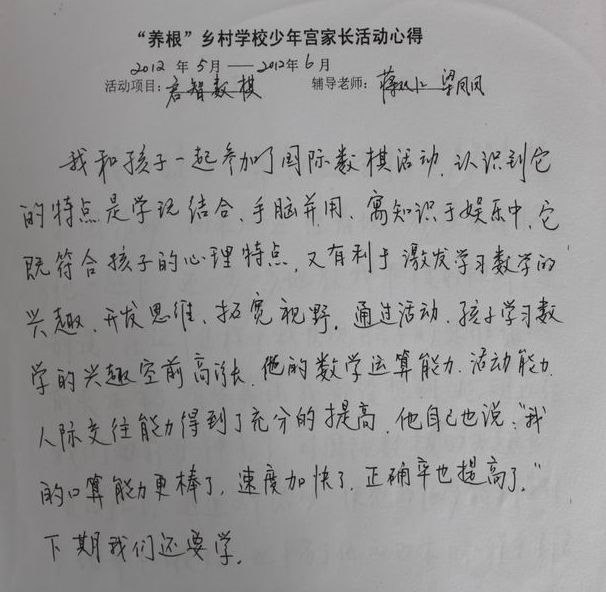 “养根”乡村学校少年宫家长活动心得
2012 年 5月 —— 2012年6月
活动项目：启智数棋 辅导老师：蒋 梁凤凤
我和孩子一起参加了国际数棋活动，认识到它
的特点是学玩结合、手脑并用、寓知识于娱乐中，它
既符合孩子的心理特点，又有利于激发学习数学的
兴趣、开发思维、拓宽视野。通过活动，孩子学习数
学的兴趣空前高涨，他的数学运算能力、活动能力、
人际交往能力得到了充分的提高，他自己也说：“我
的口算能力更棒了，速度加快了，正确率也提高了。”
下期我们还要学。